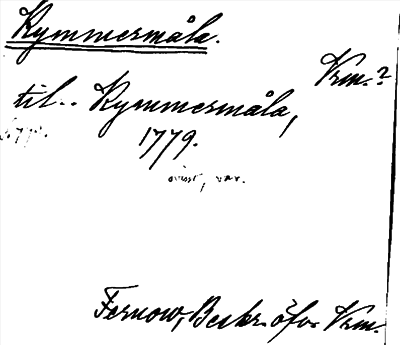 Kymmermåla.
Vrm.?
til.. Kymmermåla,
1779.
ovisst, var.
Fernow, Beskr. öfv. Vrm.